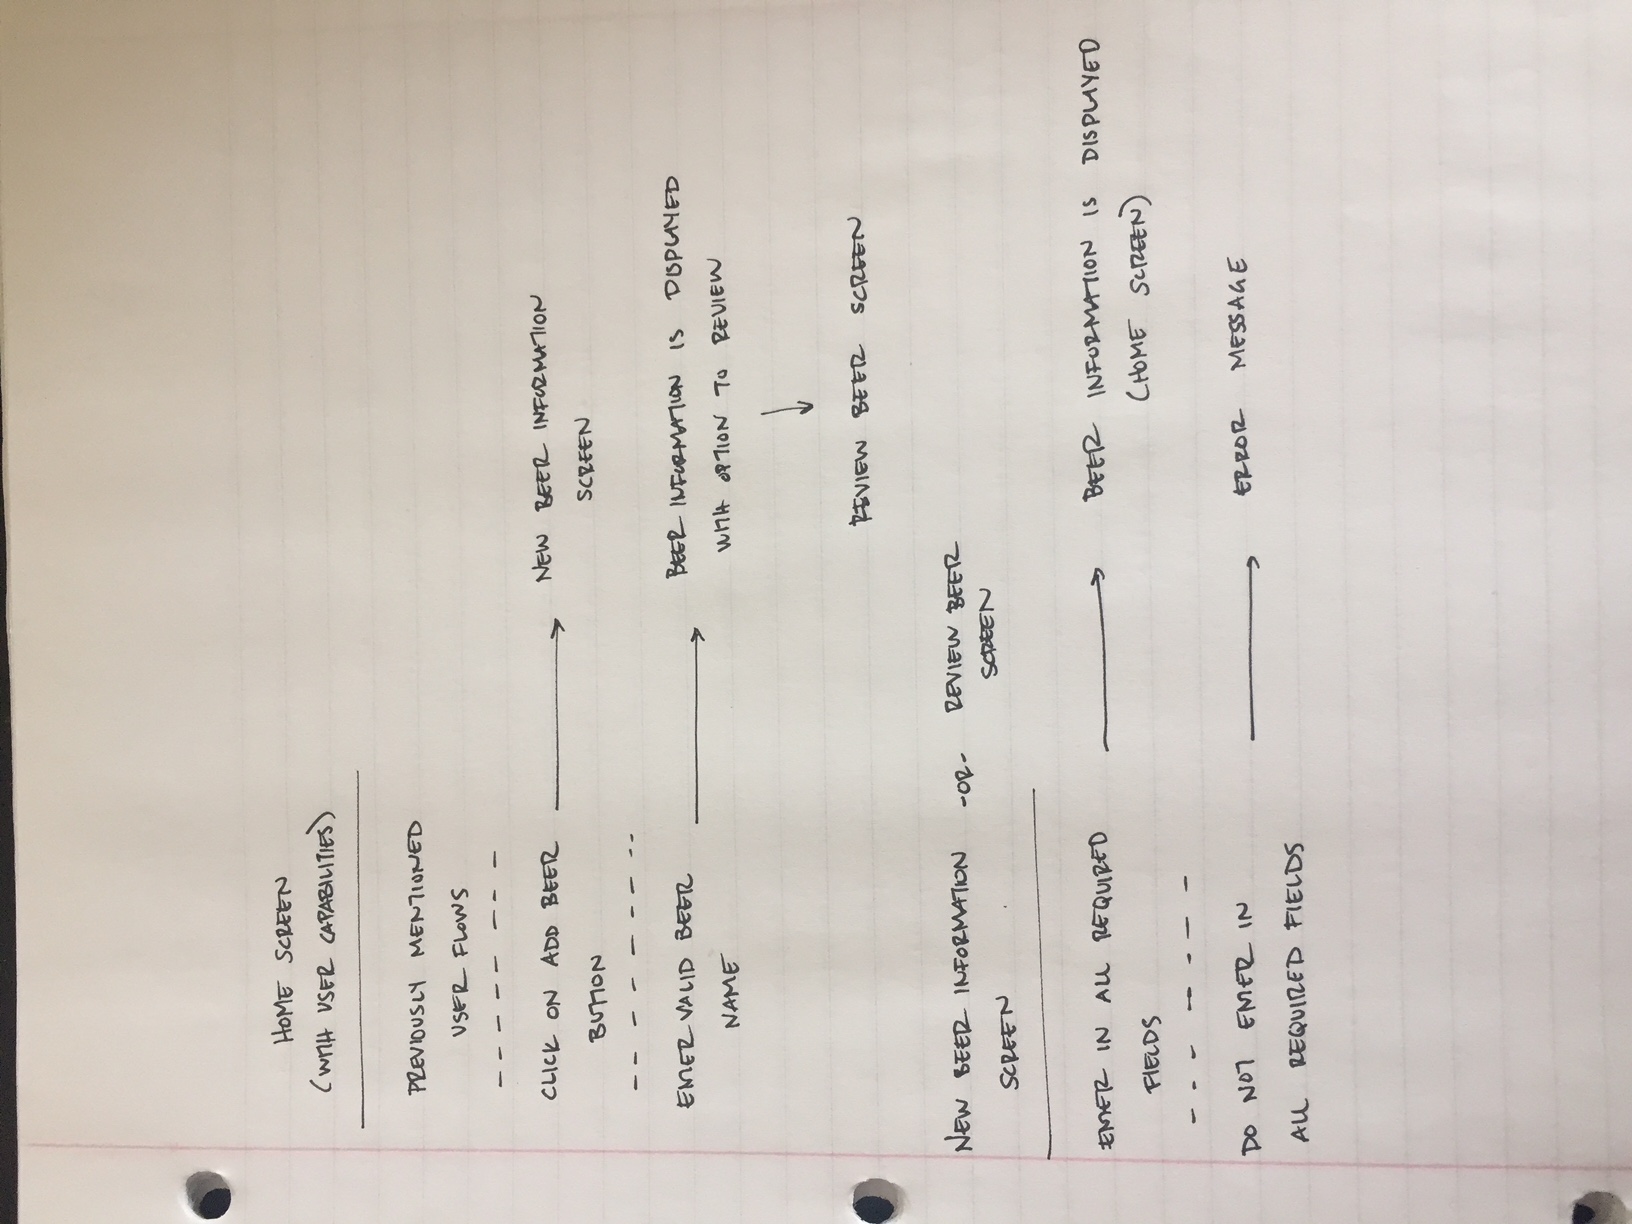 HOME SCREEN
(WITH USER CAPABILITIES)
PREVIOUSLY MENTIONED
USER FLOWS
CLICK ON ADD BEER
BUTTON
NEW BEER INFORMATION
SCREEN
ENTER VALID BEER
NAME
BEER INFORMATION IS DISPLAYED
WITH OPTION TO REVIEW
REVIEW BEER SCREEN
NEW BEER INFORMATION
SCREEN
-OR-
REVIEW BEER
SCREEN
ENTER IN ALL REQUIRED
FIELDS
BEER INFORMATION IS DISPLAYED
(HOME SCREEN)
DO NOT ENTER IN
ALL REQUIRED FIELDS
ERROR MESSAGE